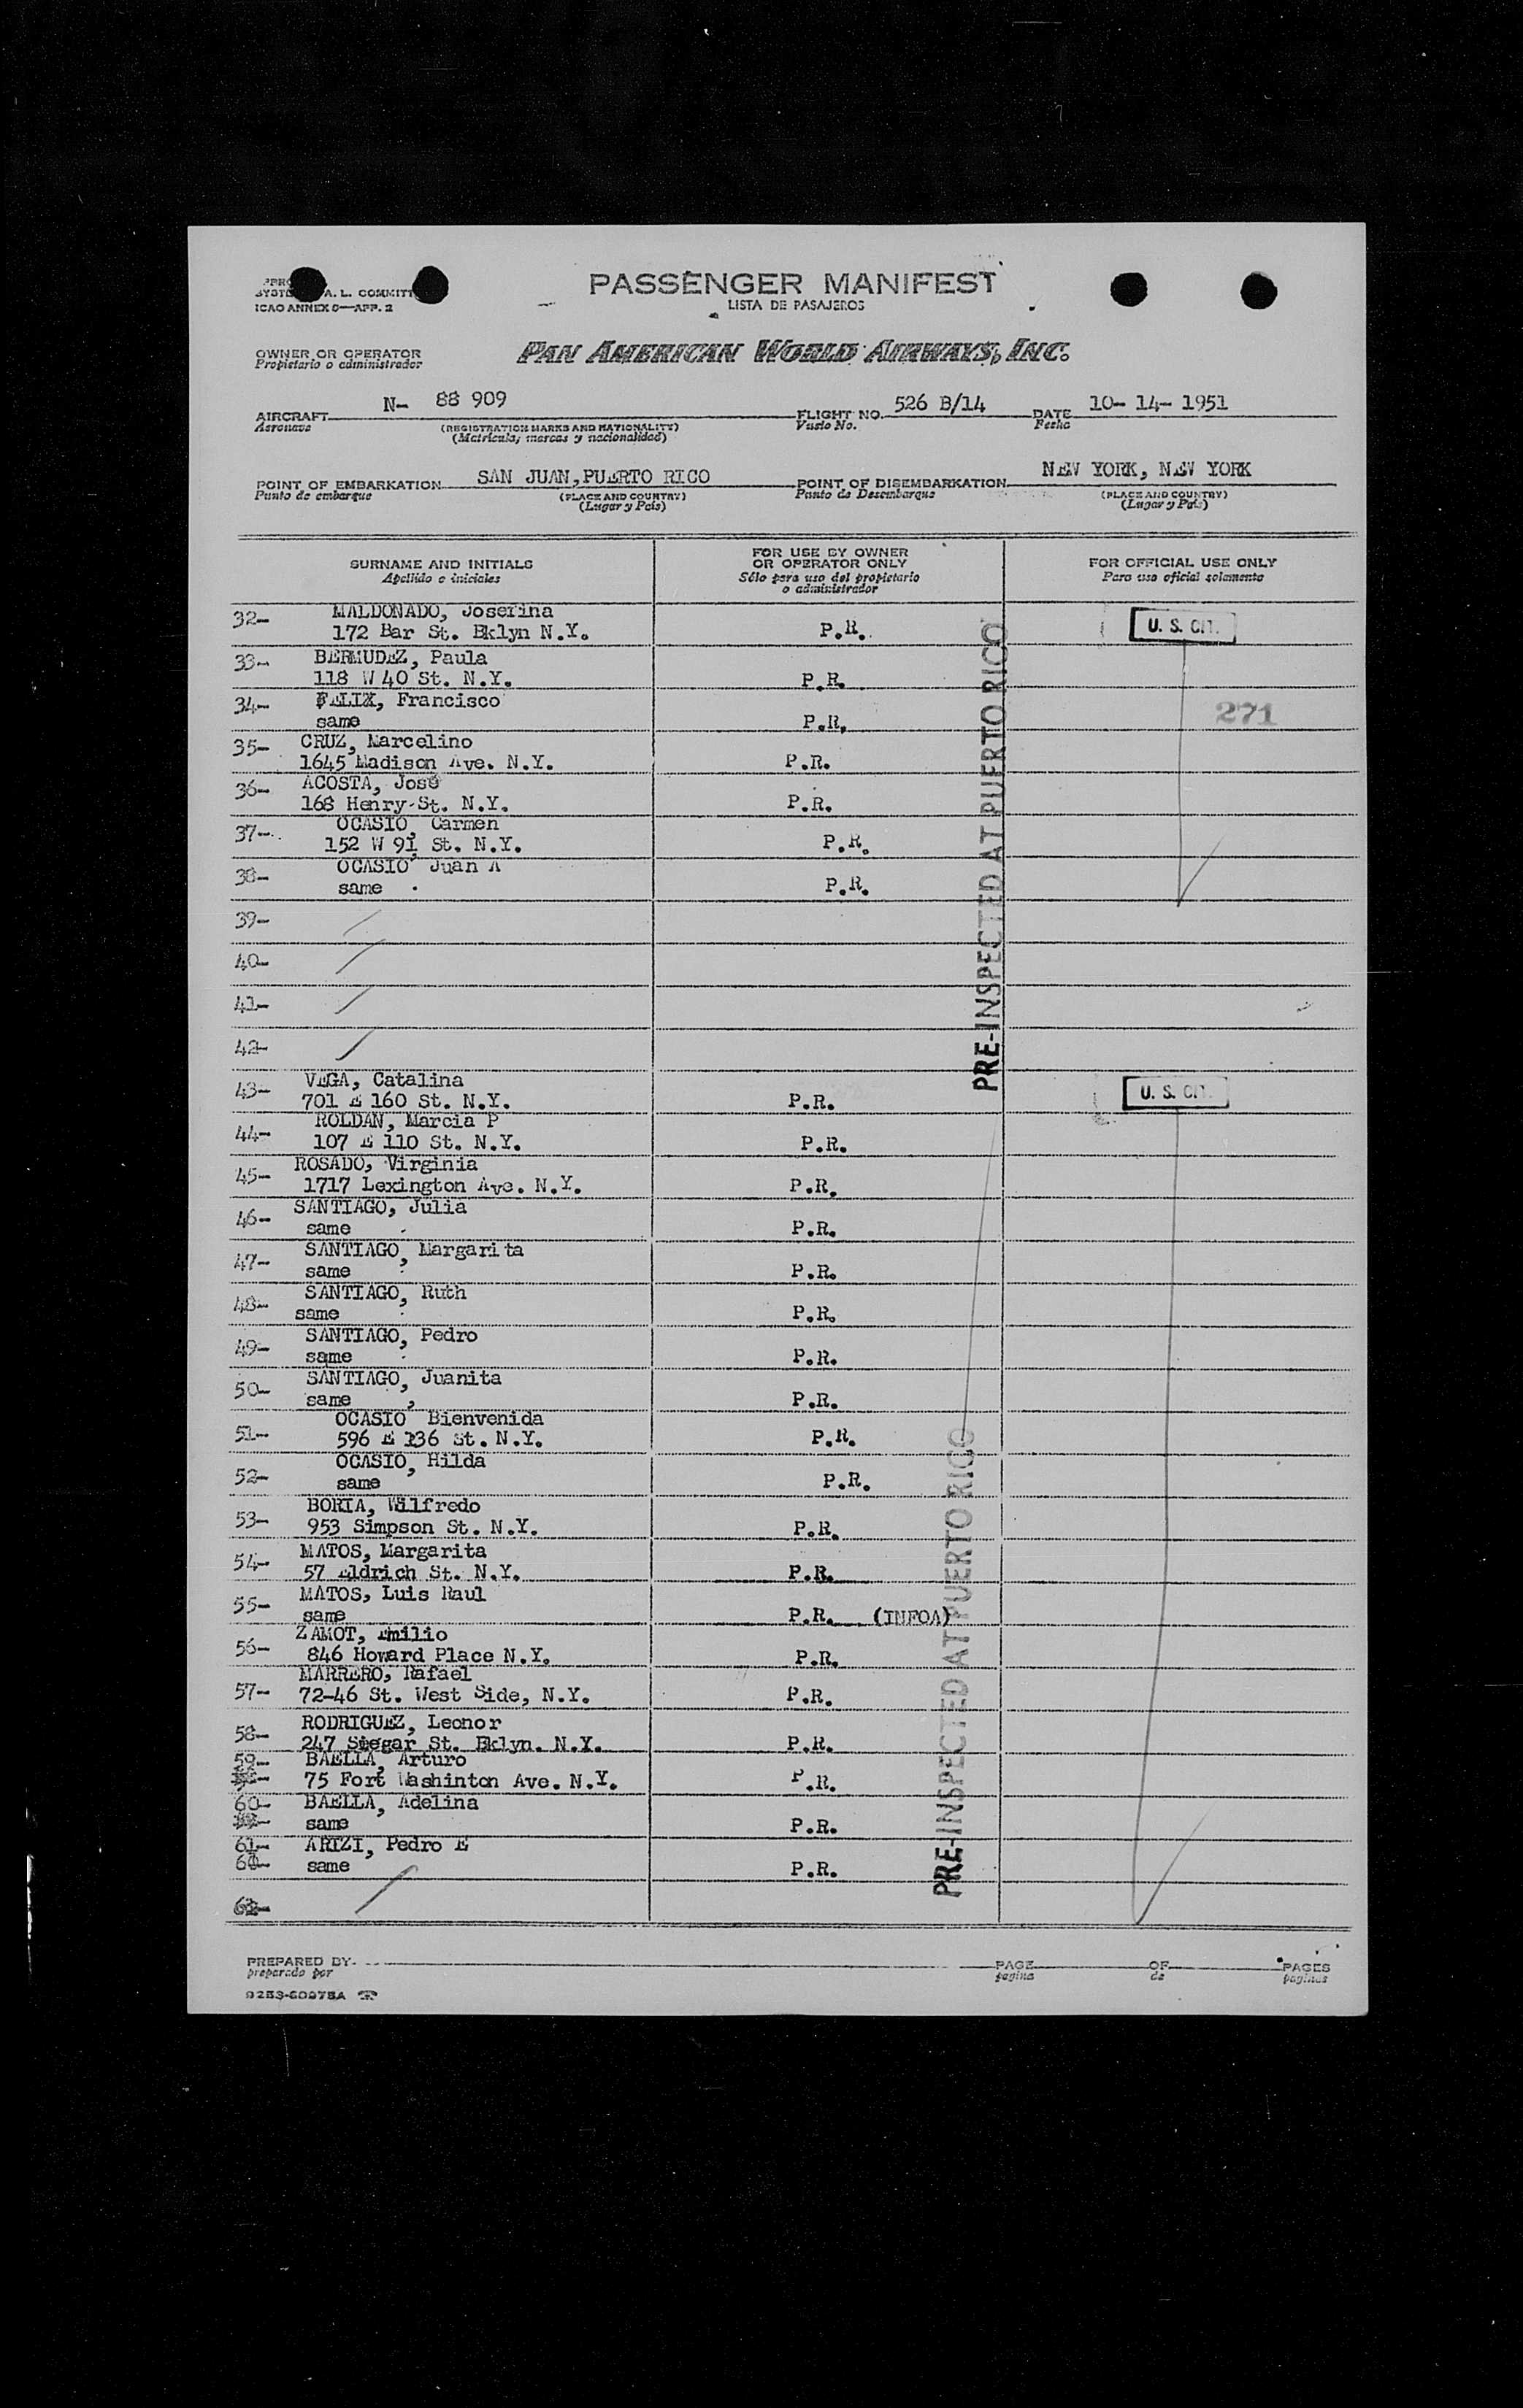 A. L. COMMITT
ICAO ANNEX 9—APP. 2
PASSENGER MANIFEST
LISTA DE PASAJEROS
OWNER OR OPERATOR
Propietario o administrador
PAN AMERICAN WORLD AIRWAYS, INC.
AIRCRAFT N- 88 909 FLIGHT NO. 526 B/14 DATE 10- 14- 1951
Aeronave (REGISTRATION MARKS AND NATIONALITY) Vuelo No. Fecha
(Matrícula, marcas y nacionalidad)
POINT OF EMBARKATION SAN JUAN, PUERTO RICO POINT OF DISEMBARKATION NEW YORK, NEW YORK
Punto de embarque (PLACE AND COUNTRY) Punto de Desembarque (PLACE AND COUNTRY)
(Lugar y País) (Lugar y País)
SURNAME AND INITIALS
Apellido e iniciales
FOR USE BY OWNER
OR OPERATOR ONLY
Sólo para uso del propietario
o administrador
FOR OFFICIAL USE ONLY
Para uso oficial solamente
32- MALDONADO, Josefina
172 Bar St. Bklyn N.Y. P.R. U. S. CIT.
33- BERMUDEZ, Paula
118 W 40 St. N.Y. P.R.
34- FELIX, Francisco 271
same P.R.
35- CRUZ, Marcelino
1645 Madison Ave. N.Y. P.R.
36- ACOSTA, José
168 Henry-St. N.Y. P.R.
37- OCASIO, Carmen
152 W 91 St. N.Y. P.R.
38- OCASIO, Juan A
same P.R.
39-
40-
41-
42-
PRE-INSPECTED AT PUERTO RICO
43- VEGA, Catalina
701 E 160 St. N.Y. P.R. U. S. CIT.
44- ROLDAN, Marcia P
107 E 110 St. N.Y. P.R.
45- ROSADO, Virginia
1717 Lexington Ave. N.Y. P.R.
46- SANTIAGO, Julia
same P.R.
47- SANTIAGO, Margarita
same P.R.
48- SANTIAGO, Ruth
same P.R.
49- SANTIAGO, Pedro
same P.R.
50- SANTIAGO, Juanita
same P.R.
51- OCASIO, Bienvenida
596 E 136 St. N.Y. P.R.
52- OCASIO, Hilda
same P.R.
53- BORIA, Wilfredo
953 Simpson St. N.Y. P.R.
54- MATOS, Margarita
57 Eldrich St. N.Y. P.R.
55- MATOS, Luis Raul
same P.R. (INFOA)
56- ZAMOT, Emilio
846 Howard Place N.Y. P.R.
57- MARRERO, Rafael
72-46 St. West Side, N.Y. P.R.
58- RODRIGUEZ, Leonor
247 Siegar St. Bklyn. N.Y. P.R.
59- BAELLA, Arturo
75 Fort Washinton Ave. N.Y. P.R.
60- BAELLA, Adelina
same P.R.
61- ARIZI, Pedro E
same P.R.
62-
PRE-INSPECTED AT PUERTO RICO
PREPARED BY PAGE OF PAGES
preparado por pagina de paginas